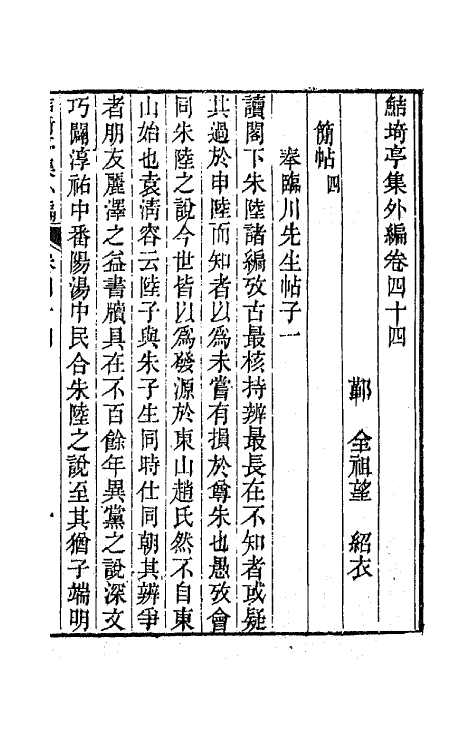 鮚埼亭集外編卷四十四
鄞　全祖望　紹衣
簡帖四
奉臨川先生帖子一
讀閣下朱陸諸編攷古最核持辨最長在不知者或疑
其過於申陸而知者以爲未嘗有損於尊朱也愚攷會
同朱陸之說今世皆以爲發源於東山趙氏然不自東
山始也袁淸容云陸子與朱子生同時仕同朝其辨爭
者朋友麗澤之益書牘具在不百餘年異黨之說深文
巧闢淳祐中番陽湯中民合朱陸之說至其猶子端明